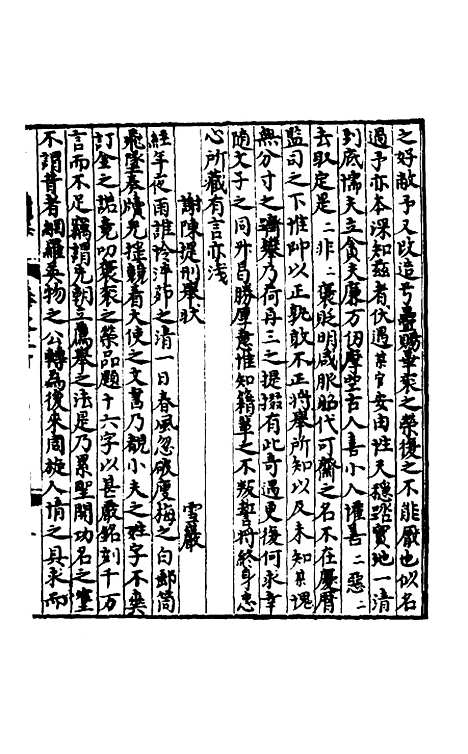 之好敝予又改造兮疊賜華袞之榮復之不能厭也似名
過予亦本深知兹者伏遇某官安由性天穩踏實地一清
到底懦夫立貪夫廉万仞摩空古人喜小人懼善二惡二
去取定是二非二褒貶明咸服筋代可齋之名不在慶曆
監司之下惟帥以正孰敢不正將舉所知以及未知某愧
無分寸之躋攀乃荷再三之提掇有此奇遇更復何求幸
随文子之同升自勝厚意惟知籍軰之不叛誓將終身惠
心所藏有言亦浅
謝陳提刑舉狀 雪巖
經年夜雨誰憐泮之清一日春風忽破慶梅之白郵筒
飛墜奏牘先摇競看天使之文書乃覩小夫之姓字不奭
訂金之諾竟叨褒袞之榮品題十六字以甚嚴銘刻千万
言而不足竊謂先朝立薦舉之法是乃累聖開功名之塗
不謂昔者網羅英物之公轉為後來周旋人情之具求而